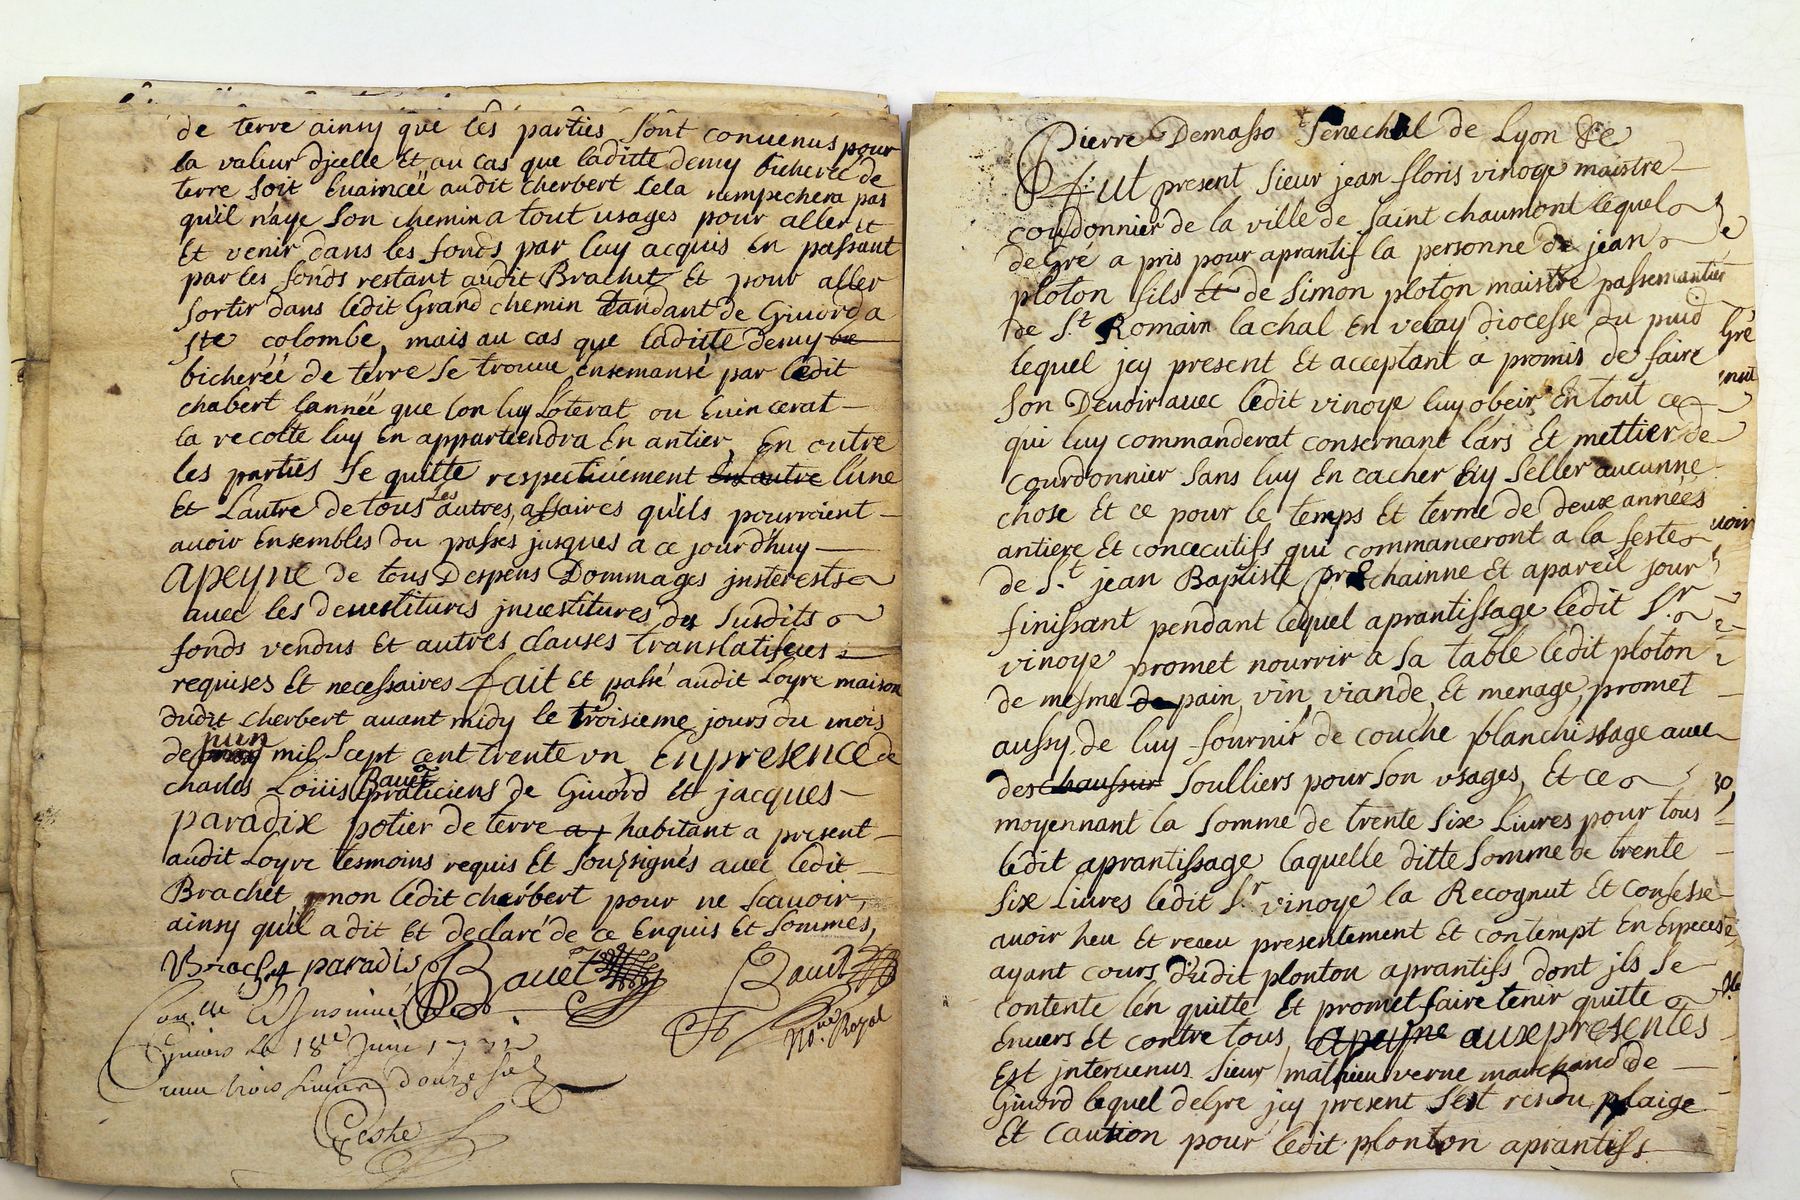 de terre ainsy que les parties sont conuenus pour
la valeur djcelle Et au cas que laditte demy bicheréé de
terre soit Euaincéë audit cherbert Cela nempechera pas
qu'il n'aye son chemin a tout usages pour aller et
Et venir dans les fonds par luy acquis En passant
par les fonds restant audit Brachet Et pour aller
sortir dans ledit Grand chemin Tandant de Giuord a
ste colombe, mais au cas que laditte demy be
bicheréé de terre se trouue ensemansé par ledit
chabert Lannéé que lon luy Loterat ou Euincerat
la recolte luy En appartiendra En antier, En outre
les parties se quitte respectiuément En lautre l'une
Et Lautre de tous les autres affaires qu'ils pourroient
auoir Ensembles du passes jusques a ce jourd'huy
apeyne de tous Despens Dommages jnsterests
auec les deuestitures jnuestitures des susdits
fonds vendus Et autres clauses translatiseues
requises Et necessaires fait Et passé audit Loyre maison
dudit cherbert auant midy le troisieme jours du mois
de juin mil Scept cent trente vn En presence de
charles Loüis Bauet praticiens de Giuord Et jacques
paradix potier de terre a habitant a present
audit Loyre tesmoins requis Et soussignés auec ledit
Brachet, non ledit cherbert pour ne scauoir,
ainsy qu'il a dit Et declaré de ce Enquis Et sommés,
Brachet paradis Bauet Bauet
No.re Royal
Con.lé
Giuors le 18e Juin 1731
trois liures douze sols
Pierre Demasso Senechal de Lyon &c
Fut present Sieur jean floris vinoye maistre
coudonnier de la ville de saint chaumont lequel
de Gré a pris pour aprantif la personne de jean
ploton fils Et de Simon ploton maistre passemantier
de S.t Romain lachal En velay diocesse du puid
lequel jcy present Et acceptant a promis de faire
son Deuoir auec ledit vinoye luy obeir En tout ce
qui luy commanderat consernant l'ars Et mettier de
courdonnier sans luy En cacher n'y seller aucunne
chose Et ce pour le temps Et terme de deux années
antiere Et concecutifs qui commanceront a la feste
de S.t jean Baptiste prochainne Et apareil jour
finissant pendant lequel aprantissage ledit S.r
vinoye promet nourrir a sa table ledit ploton
de mesme de pain, vin, viande, Et menage, promet
aussy de luy fournir de couche planchissage auec
des chaussur soulliers pour son usages, Et ce
moyennant la somme de trente six Liures pour tous
ledit aprantissage laquelle ditte somme de trente
six Liures ledit S.r vinoye la Recognut Et confesse
auoir heu Et receu presentement Et contempt En Especes
ayant cours dudit plonton aprantifs dont jls se
contente len quitte Et promet faire tenir quitte
Enuers Et contre tous, apeyne aux presentes
Est jnteruenus Sieur mathieu verne marchand de
Giuord lequel de Gre jcy present s'est rendu plaige
Et Caution pour ledit plonton aprantifs
Gré
uoir
30